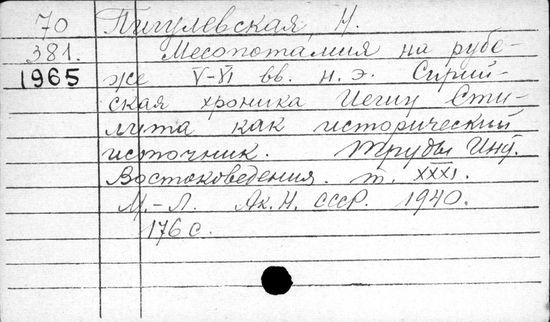 70 Пигулевская, Н.
381. Месопотамия на рубе-
1965 же V-VI вв. н.э. Сирий-
ская хроника Иешу Сти-
лита как исторический
источник. Труды Инт.
Востоковедения. т. XXXI.
М.-Л. Ак.Н. СССР. 1940.
176 с.